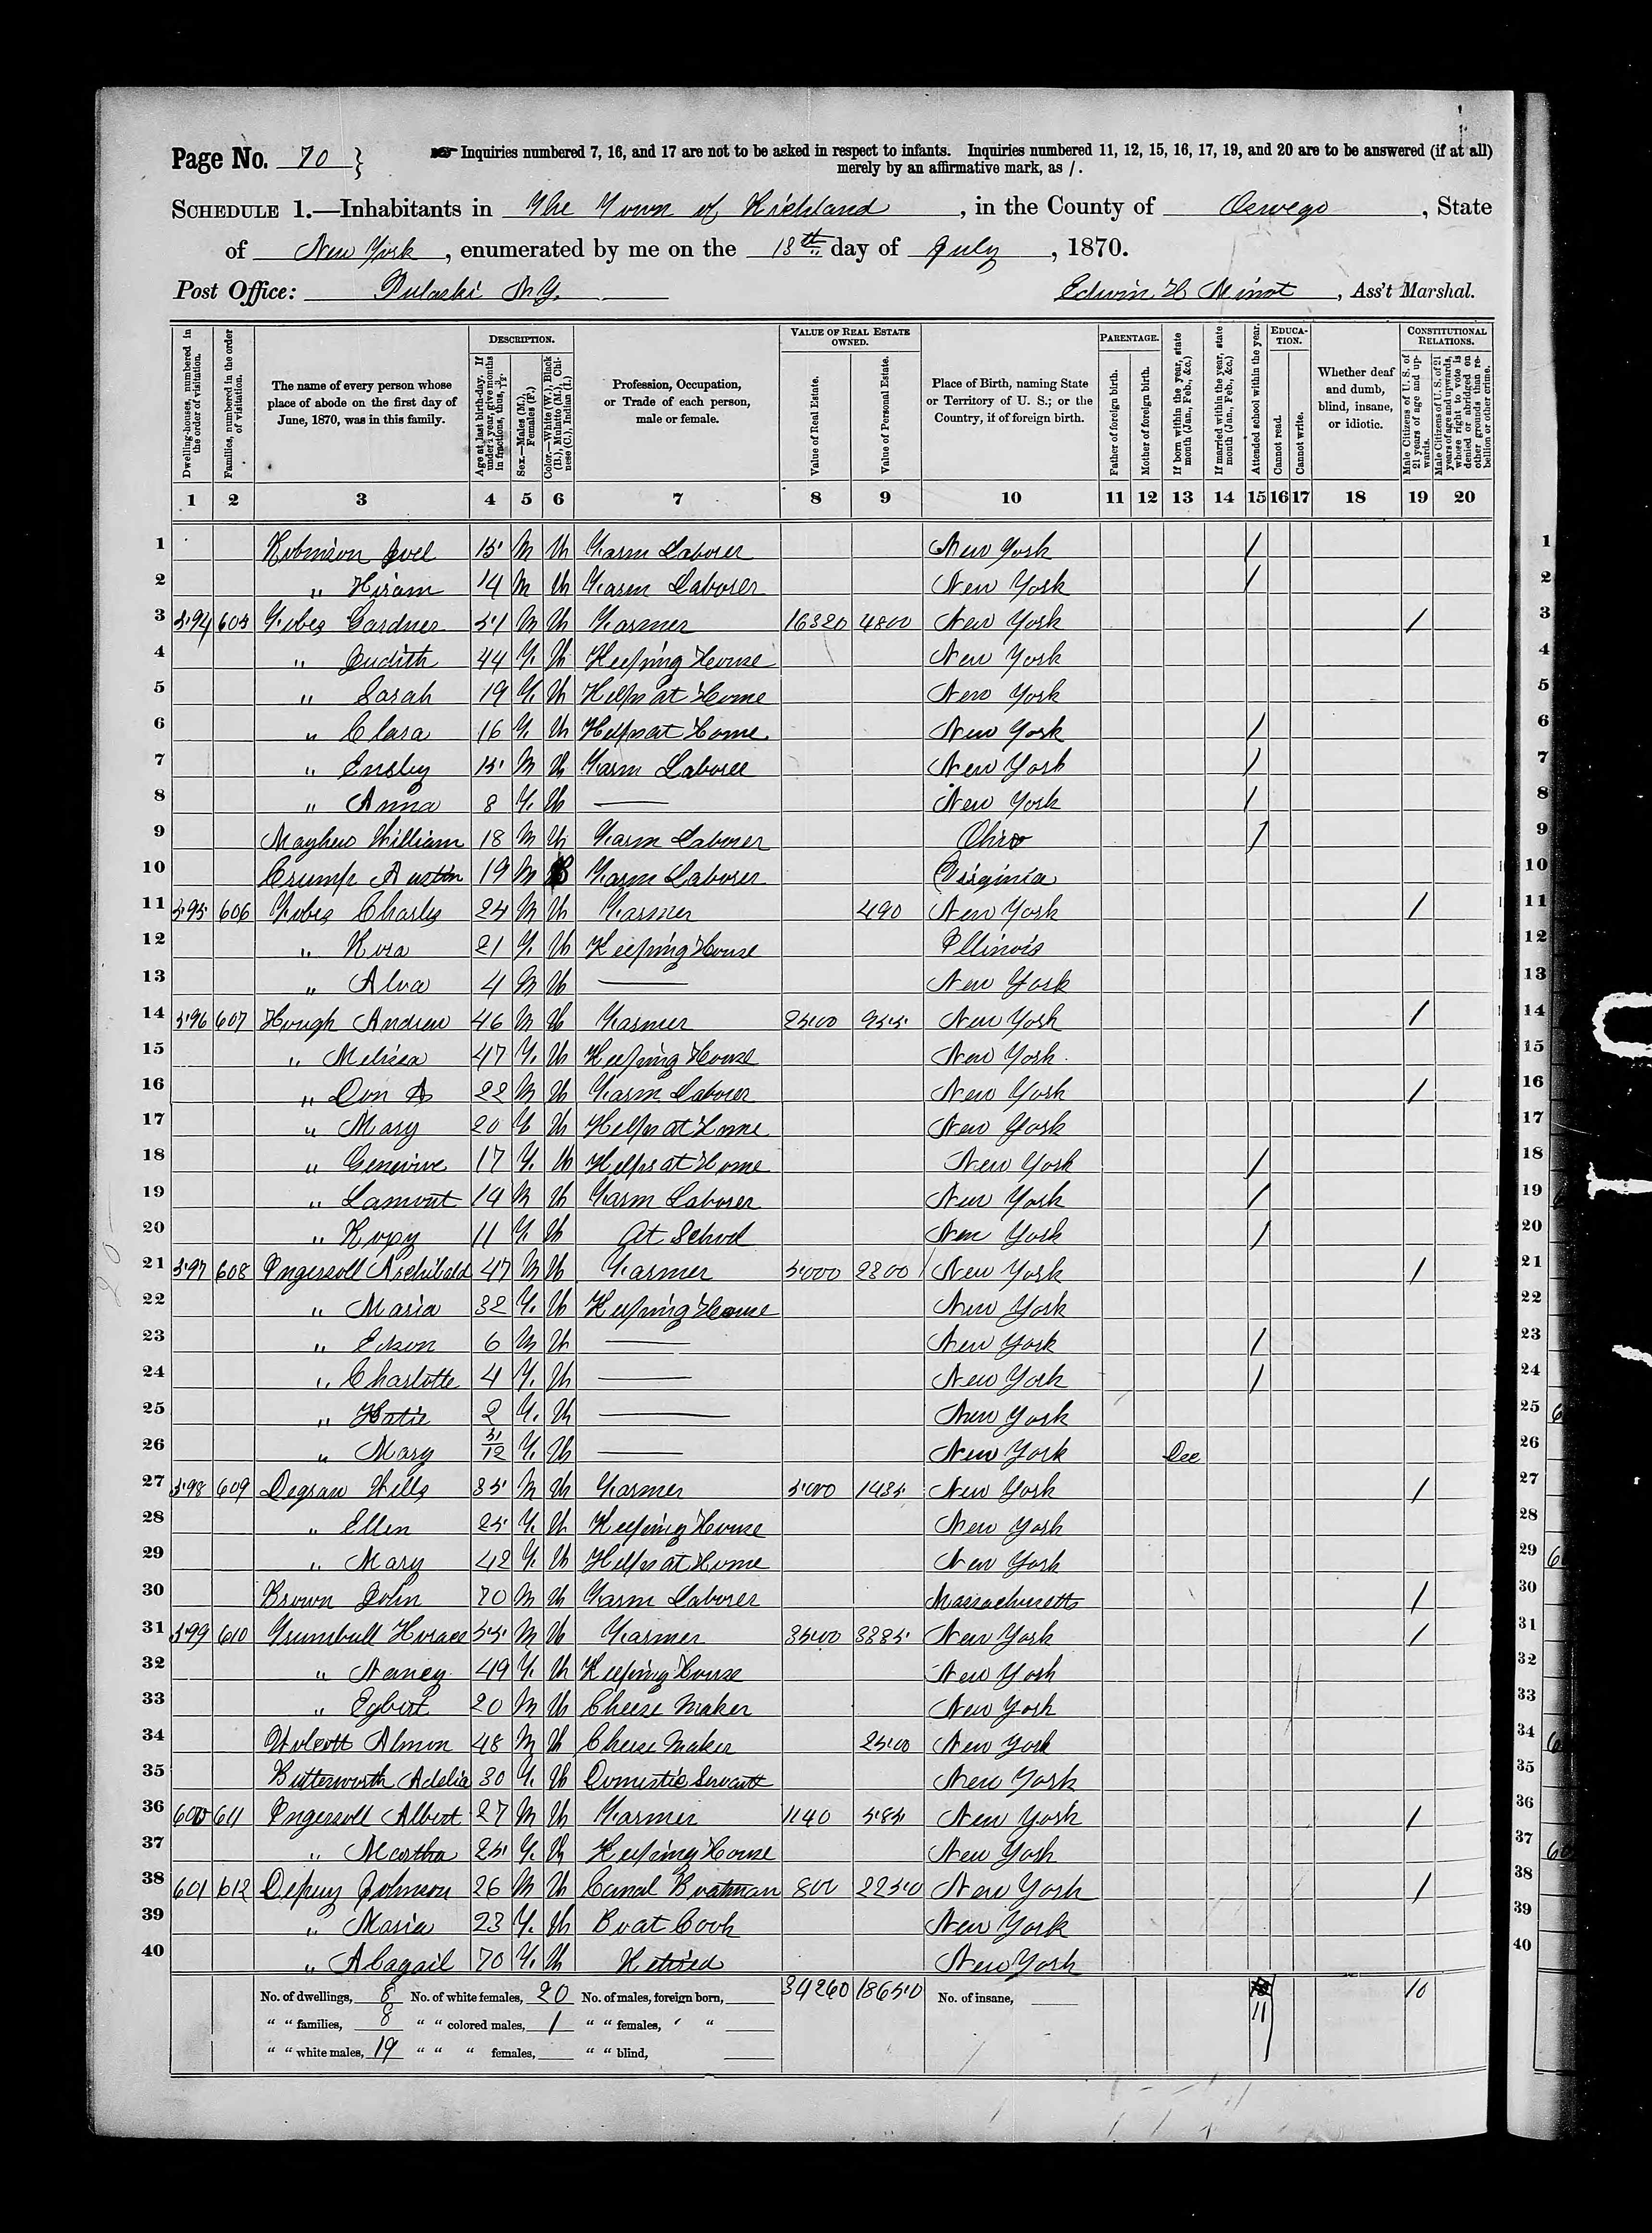 Page No. 70 }
Inquiries numbered 7, 16, and 17 are not to be asked in respect to infants. Inquiries numbered 11, 12, 15, 16, 17, 19, and 20 are to be answered (if at all)
merely by an affirmative mark, as /.
SCHEDULE 1.—Inhabitants in The Town of Richland, in the County of Oswego, State
of New York, enumerated by me on the 18th day of July, 1870.
Post Office: Pulaski N.Y. Edwin H Minot, Ass't Marshal.
Dwelling-houses, numbered in the order of visitation.
Families, numbered in the order of visitation.
The name of every person whose place of abode on the first day of June, 1870, was in this family.
DESCRIPTION.
Age at last birth-day. If under 1 year, give months in fractions, thus, 3/12.
Sex.—Males (M.), Females (F.)
Color.—White (W.), Black (B.), Mulatto (M.), Chinese (C.), Indian (I.)
Profession, Occupation, or Trade of each person, male or female.
VALUE OF REAL ESTATE OWNED.
Value of Real Estate.
Value of Personal Estate.
Place of Birth, naming State or Territory of U. S.; or the Country, if of foreign birth.
PARENTAGE.
Father of foreign birth.
Mother of foreign birth.
If born within the year, state month (Jan., Feb., &c.)
If married within the year, state month (Jan., Feb., &c.)
Attended school within the year.
EDUCATION.
Cannot read.
Cannot write.
Whether deaf and dumb, blind, insane, or idiotic.
CONSTITUTIONAL RELATIONS.
Male Citizens of U. S. of 21 years of age and upwards.
Male Citizens of U. S. of 21 years of age and upwards, whose right to vote is denied or abridged on other grounds than rebellion or other crime.
1 2 3 4 5 6 7 8 9 10 11 12 13 14 15 16 17 18 19 20
1 Robinson Joel 15 M W Farm Laborer New York / 1
2 " Hiram 14 M W Farm Laborer New York / 2
3 594 605 Fobes Gardner 51 M W Farmer 16320 4800 New York / 3
4 " Judith 44 F. W Keeping House New York 4
5 " Sarah 19 F. W Helps at Home New York 5
6 " Clara 16 F. W Helps at Home New York / 6
7 " Ensley 15 M W Farm Laborer New York / 7
8 " Anna 8 F. W — New York / 8
9 Mayhew William 18 M W Farm Laborer Ohio / 9
10 Crump Austin 19 M B Farm Laborer Virginia 10
11 595 606 Fobes Charles 24 M W Farmer 490 New York / 11
12 " Rosa 21 F. W Keeping House Illinois 12
13 " Alva 4 M W — New York 13
14 596 607 Hough Andrew 46 M W Farmer 2500 955 New York / 14
15 " Melissa 47 F. W Keeping House New York 15
16 " Don A 22 M W Farm Laborer New York / 16
17 " Mary 20 F W Helps at Home New York 17
18 " Genevive 17 F. W Helps at Home New York / 18
19 " Lamont 14 M W Farm Laborer New York / 19
20 " Roxy 11 F. W At School New York / 20
21 597 608 Ingersoll Archibald 47 M W Farmer 5000 2800 New York / 21
22 " Maria 32 F. W Keeping House New York 22
23 " Edson 6 M W — New York / 23
24 " Charlotte 4 F. W — New York / 24
25 " Hatie 2 F. W — New York 25
26 " Mary 5/12 F. W — New York Dec 26
27 598 609 Degraw Wells 35 M W Farmer 5000 1435 New York / 27
28 " Ellen 25 F. W Keeping House New York 28
29 " Mary 42 F. W Helps at Home New York 29
30 Brown John 70 M W Farm Laborer Massachusetts / 30
31 599 610 Grumbull Horace 55 M W Farmer 3500 3385 New York / 31
32 " Nancy 49 F. W Keeping House New York 32
33 " Egbert 20 M W Cheese Maker New York 33
34 Wolcott Almon 48 M W Cheese Maker 2500 New York 34
35 Butterworth Adelia 30 F. W Domestic Servant New York 35
36 600 611 Ingersoll Albert 27 M W Farmer 1140 585 New York / 36
37 " Martha 25 F. W Keeping House New York 37
38 601 612 Depuy Johnson 26 M W Canal Boatman 800 2250 New York / 38
39 " Maria 23 F. W Boat Cook New York 39
40 " Abagail 70 F. W Retired New York 40
No. of dwellings, 8 No. of white females, 20 No. of males, foreign born, 34260 18650 No. of insane, 10
" " families, 8 " " colored males, 1 " " females, " " 11
" " white males, 19 " " " females, " " blind,